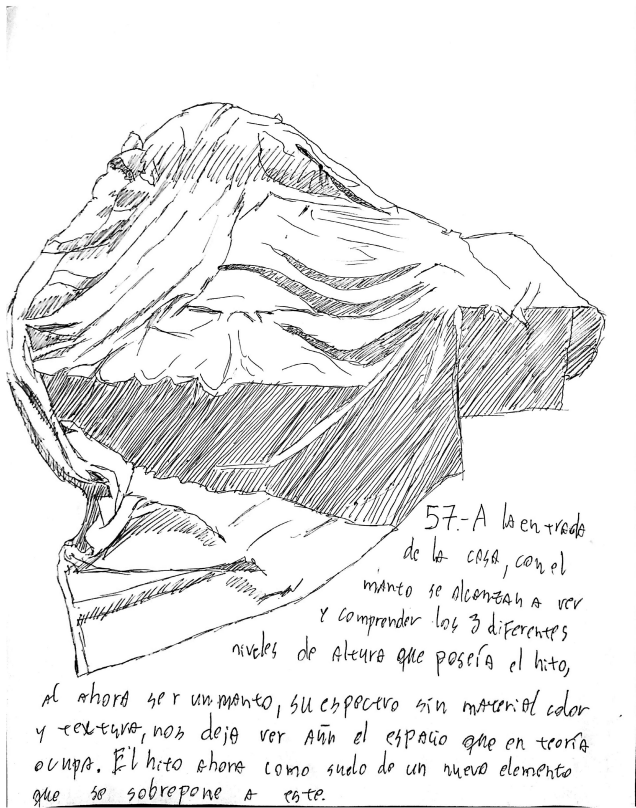 57.- A la entrada
de la casa, con el
manto se alcanzan a ver
y comprender los 3 diferentes
niveles de altura que poseía el hito,
al ahora ser un manto, su espectro sin material color
y textura, nos deja ver aún el espacio que en teoría
ocupa. El hito ahora como suelo de un nuevo elemento
que se sobrepone a este.